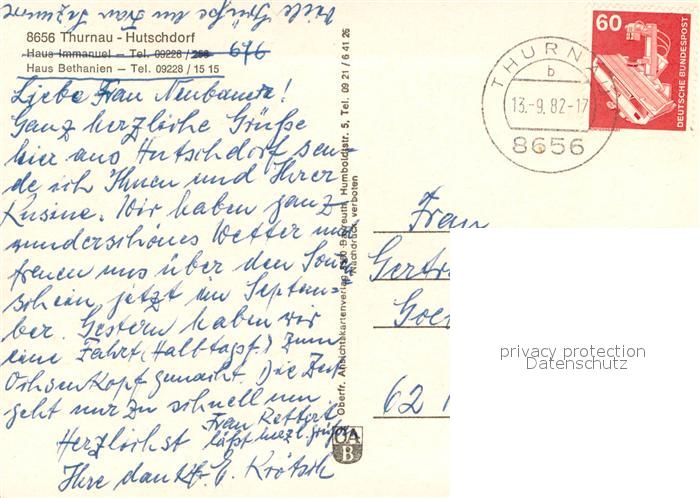 Viele Grüße an Frau
8656 Thurnau - Hutschdorf
Haus Immanuel — Tel. 09228 / 256 676
Haus Bethanien — Tel. 09228 / 15 15
Liebe Frau Neubauer!
Ganz herzliche Grüße
hier aus Hutschdorf sen-
de ich Ihnen und Ihrer
Kusine. Wir haben ganz
wunderschönes Wetter und
freuen uns über den Son-
schein jetzt im Septem-
ber. Gestern haben wir
eine Fahrt (Halbtagsf.) zum
Ochsenkopf gemacht. Die Zeit
geht nur zu schnell um
Frau
Herzlichst läßt herzl. grüßen
Ihre dankb. E. Krötsch
Oberfr. Ansichtskartenverlag 8580 Bayreuth, Humboldtstr. 5, Tel. 09 21 / 6 41 26
Nachdruck verboten
OA
B
THURNAU
b
13.-9.82-17
8656
60
DEUTSCHE BUNDESPOST
Frau
Gertr
Goe
62
privacy protection
Datenschutz